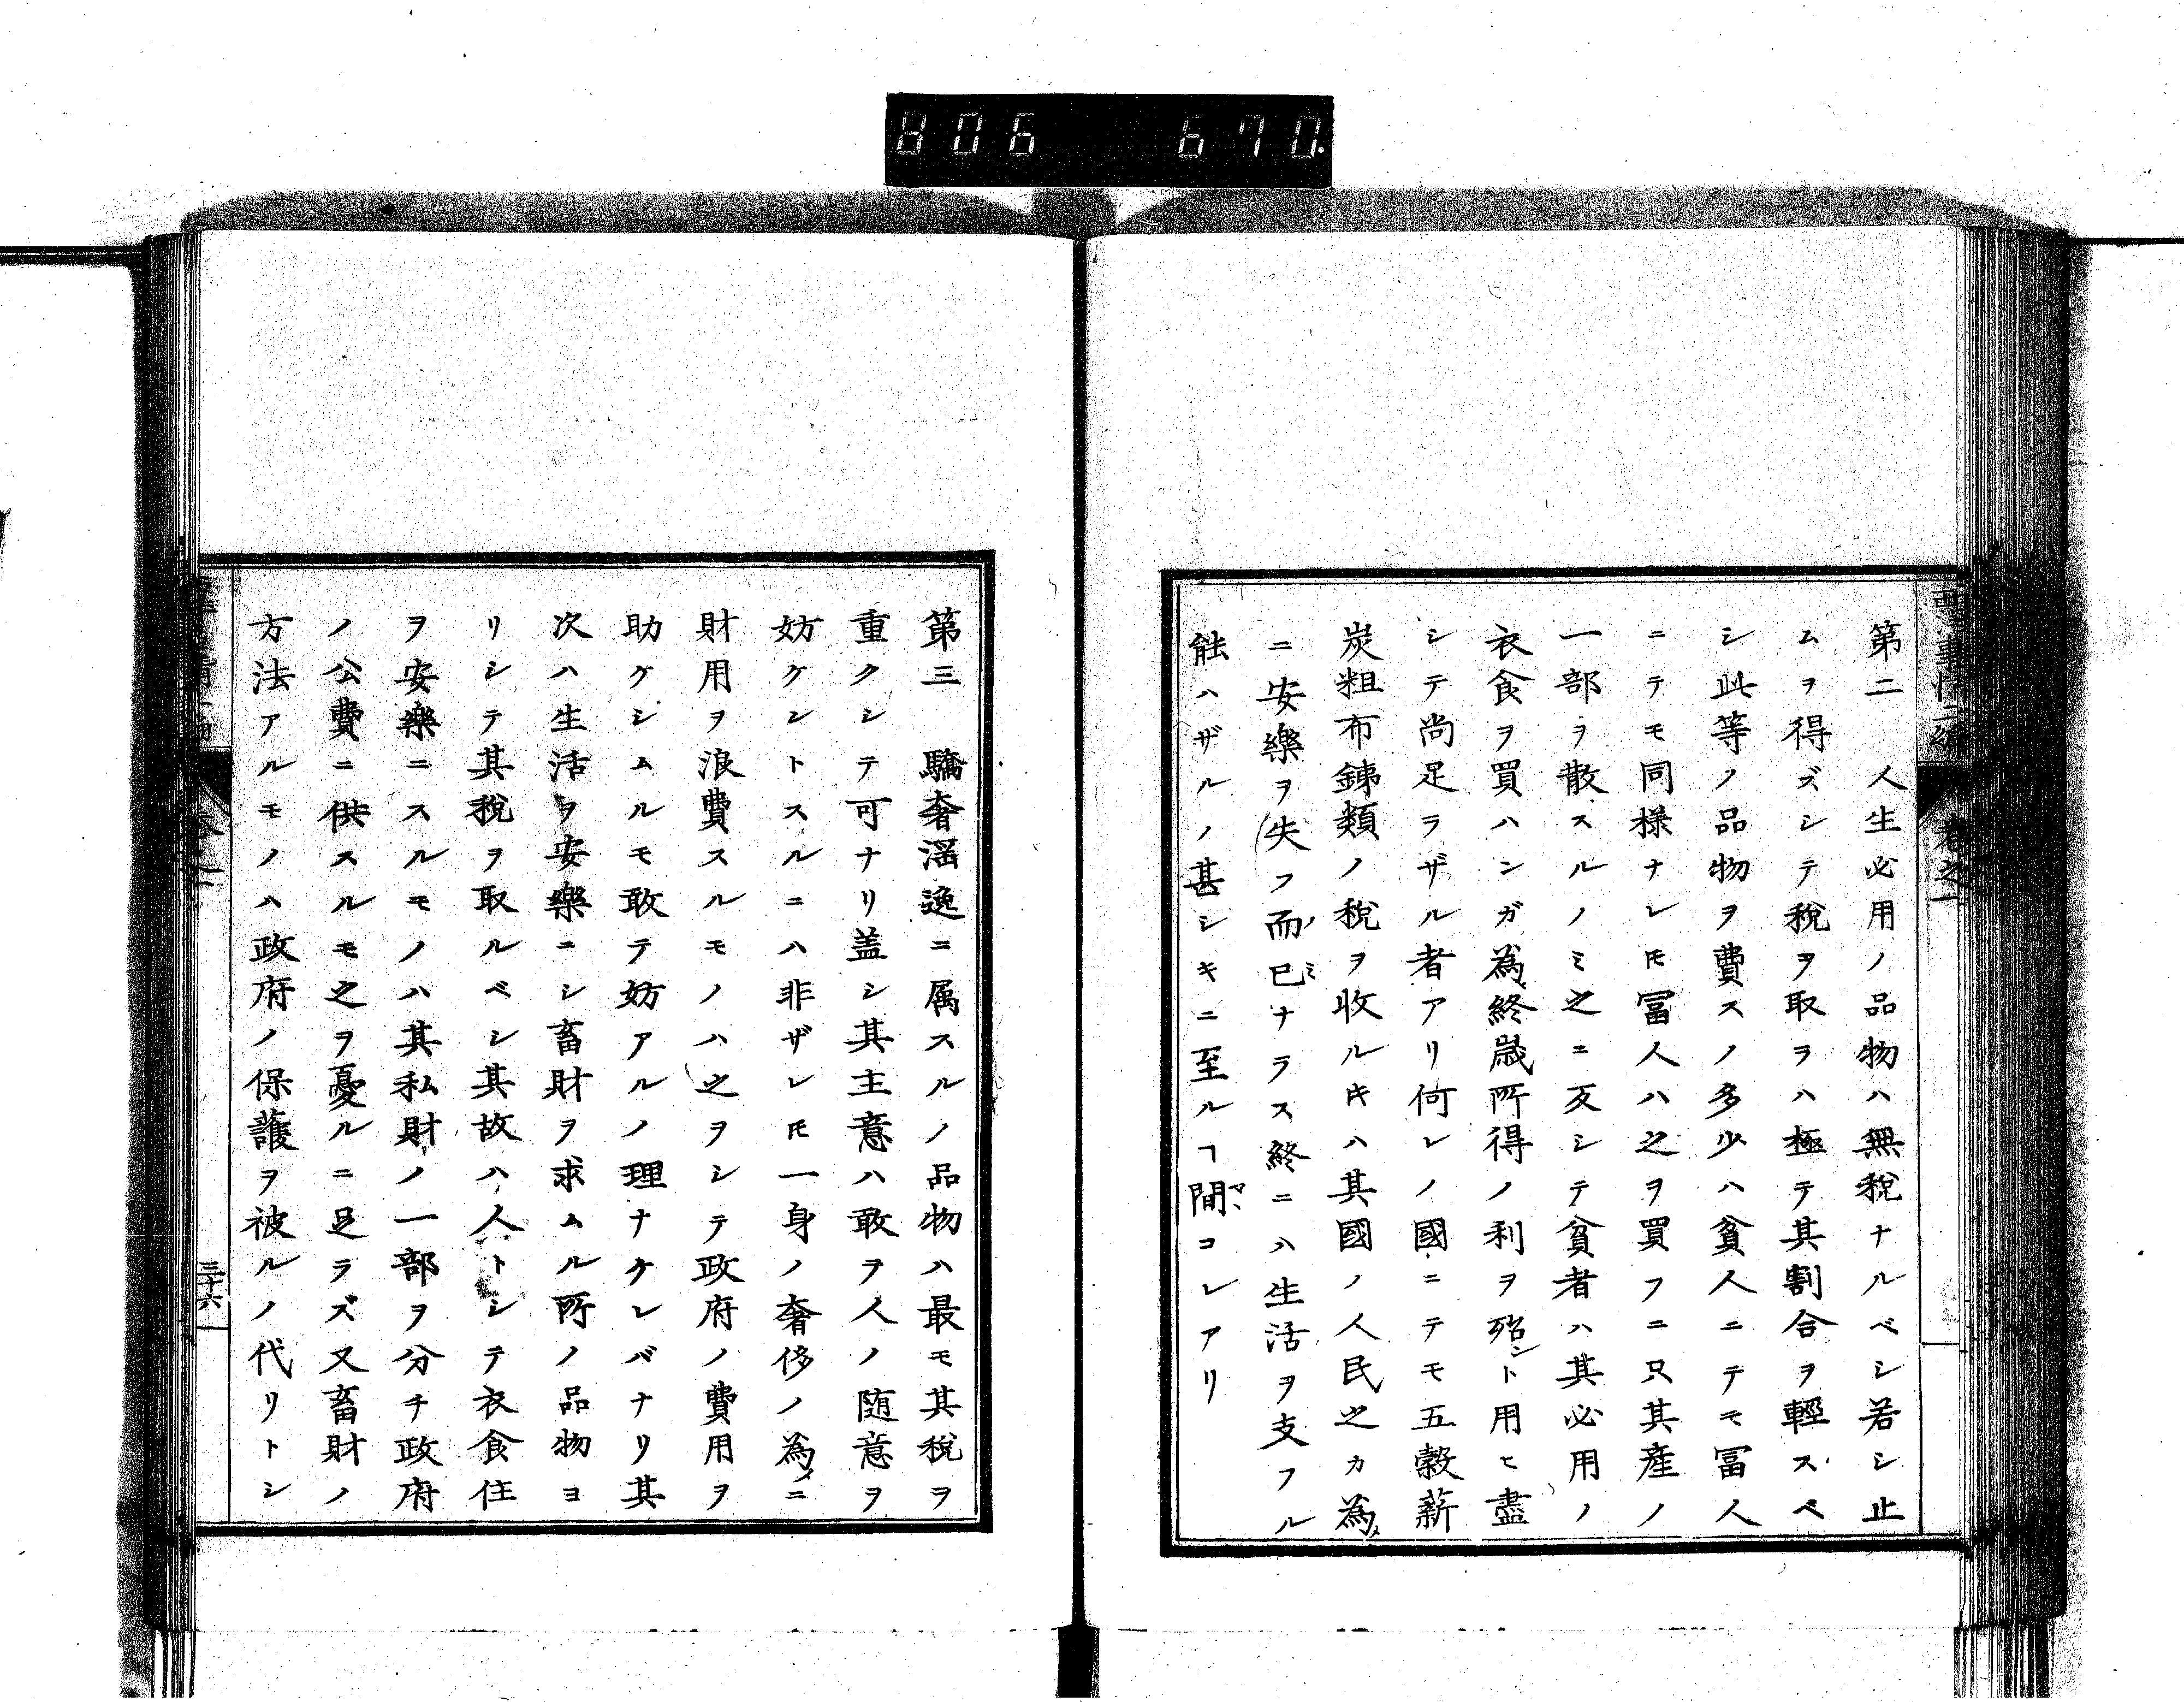 806 670.
西洋事情二編 卷之一
第二 人生必用ノ品物ハ無稅ナルベシ若シ止
ムヲ得ズシテ稅ヲ取ラハ極テ其割合ヲ輕スベ
シ此等ノ品物ヲ費スノ多少ハ貧人ニテモ冨人
ニテモ同様ナレ𪜈冨人ハ之ヲ買フニ只其產ノ
一部ヲ散スルノミ之ニ反シテ貧者ハ其必用ノ
衣食ヲ買ハンガ為終歲所得ノ利ヲ殆ント用ヒ盡
シテ尚足ラザル者アリ何レノ國ニテモ五穀薪
炭粗布銕類ノ稅ヲ收ルキハ其國ノ人民之カ為メ
ニ安樂ヲ失フ而已ノミナラス終ニハ生活ヲ支フル
能ハザルノ甚シキニ至ルヿ間マヽコレアリ
第三 驕奢滛逸ニ属スルノ品物ハ最モ其稅ヲ
重クシテ可ナリ盖シ其主意ハ敢ヲ人ノ随意ヲ
妨ケントスルニハ非ザレ𪜈一身ノ奢侈ノ為メニ
財用ヲ浪費スルモノハ之ヲシテ政府ノ費用ヲ
助ケシムルモ敢テ妨アルノ理ナケレバナリ其
次ハ生活ヲ安樂ニシ畜財ヲ求ムル所ノ品物ヨ
リシテ其稅ヲ取ルベシ其故ハ人トシテ衣食住
ヲ安樂ニスルモノハ其私財ノ一部ヲ分チ政府
ノ公費ニ供スルモ之ヲ憂ルニ足ラズ又畜財ノ
方法アルモノハ政府ノ保護ヲ被ルノ代リトシ
三十六